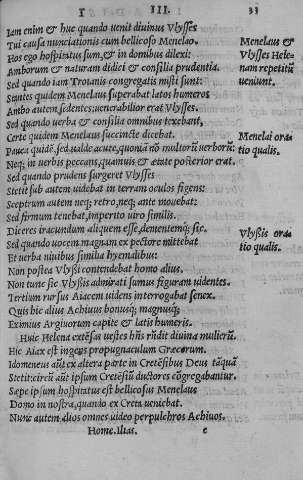 I III. 33
Iam enim & huc quando uenit diuinus Vlysses
Tui causa nunciationis cum bellicoso Menelao.
Hos ego hospitatus sum, & in domibus dilexi:
Amborum & naturam didici & consilia prudentia.
Sed quando iam Troianis congregatis misti sunt:
Stantes quidem Menelaus superabat latos humeros
Ambo autem sedentes: uenerabilior erat Vlysses.
Sed quando uerba & consilia omnibus texebant,
Certe quidem Menelaus succincte dicebat.
Pauca quidē, sed ualde acute, quoniā nō multorū uerborū:
Neq; in uerbis peccans, quamuis & etate posterior erat.
Sed quando prudens surgeret Vlysses
Stetit sub autem uidebat in terram oculos figens:
Sceptrum autem neq; retro, neq; ante mouebat:
Sed firmum tenebat, imperito uiro similis.
Diceres iracundum aliquem esse, dementemq; sic.
Sed quando uocem magnam ex pectore mittebat
Et uerba niuibus similia hyemalibus:
Non postea Vlyssi contendebat homo alius.
Non tunc sic Vlyssis admirati sumus figuram uidentes.
Tertium rursus Aiacem uidens interrogabat senex.
Quis hic alius Achiuus bonusq; magnusq;
Eximius Argiuorum capite & latis humeris.
Huic Helena extēsas uestes hñs rñdit diuina mulierū.
Hic Aiax est ingens propugnaculum Græcorum.
Idomeneus aūt ex altera parte in Cretēsibus Deus tāquā
Stetit: circū aūt ipsum Cretēsiū ductores cōgregabantur.
Sæpe ipsum hospitatus est bellicosus Menelaus
Domo in nostra, quando ex Creta ueniebat.
Nunc autem alios omnes uideo perpulchros Achiuos.
Home. Ilias. e
Menelaus &
Vlysses Hele-
nam repetitū
ueniunt.
Menelai ora
tio qualis.
Vlyssis ora
tio qualis.